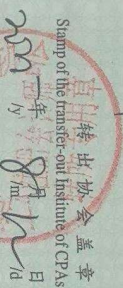 转出协会盖章
Stamp of the transfer-out Institute of CPAs
年 8 月 日
/y /m /d